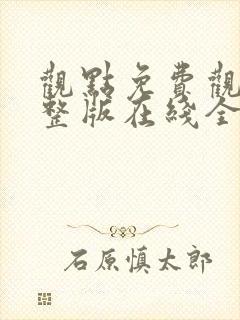 觀點免費觀
整版在綫全
石原慎太郎